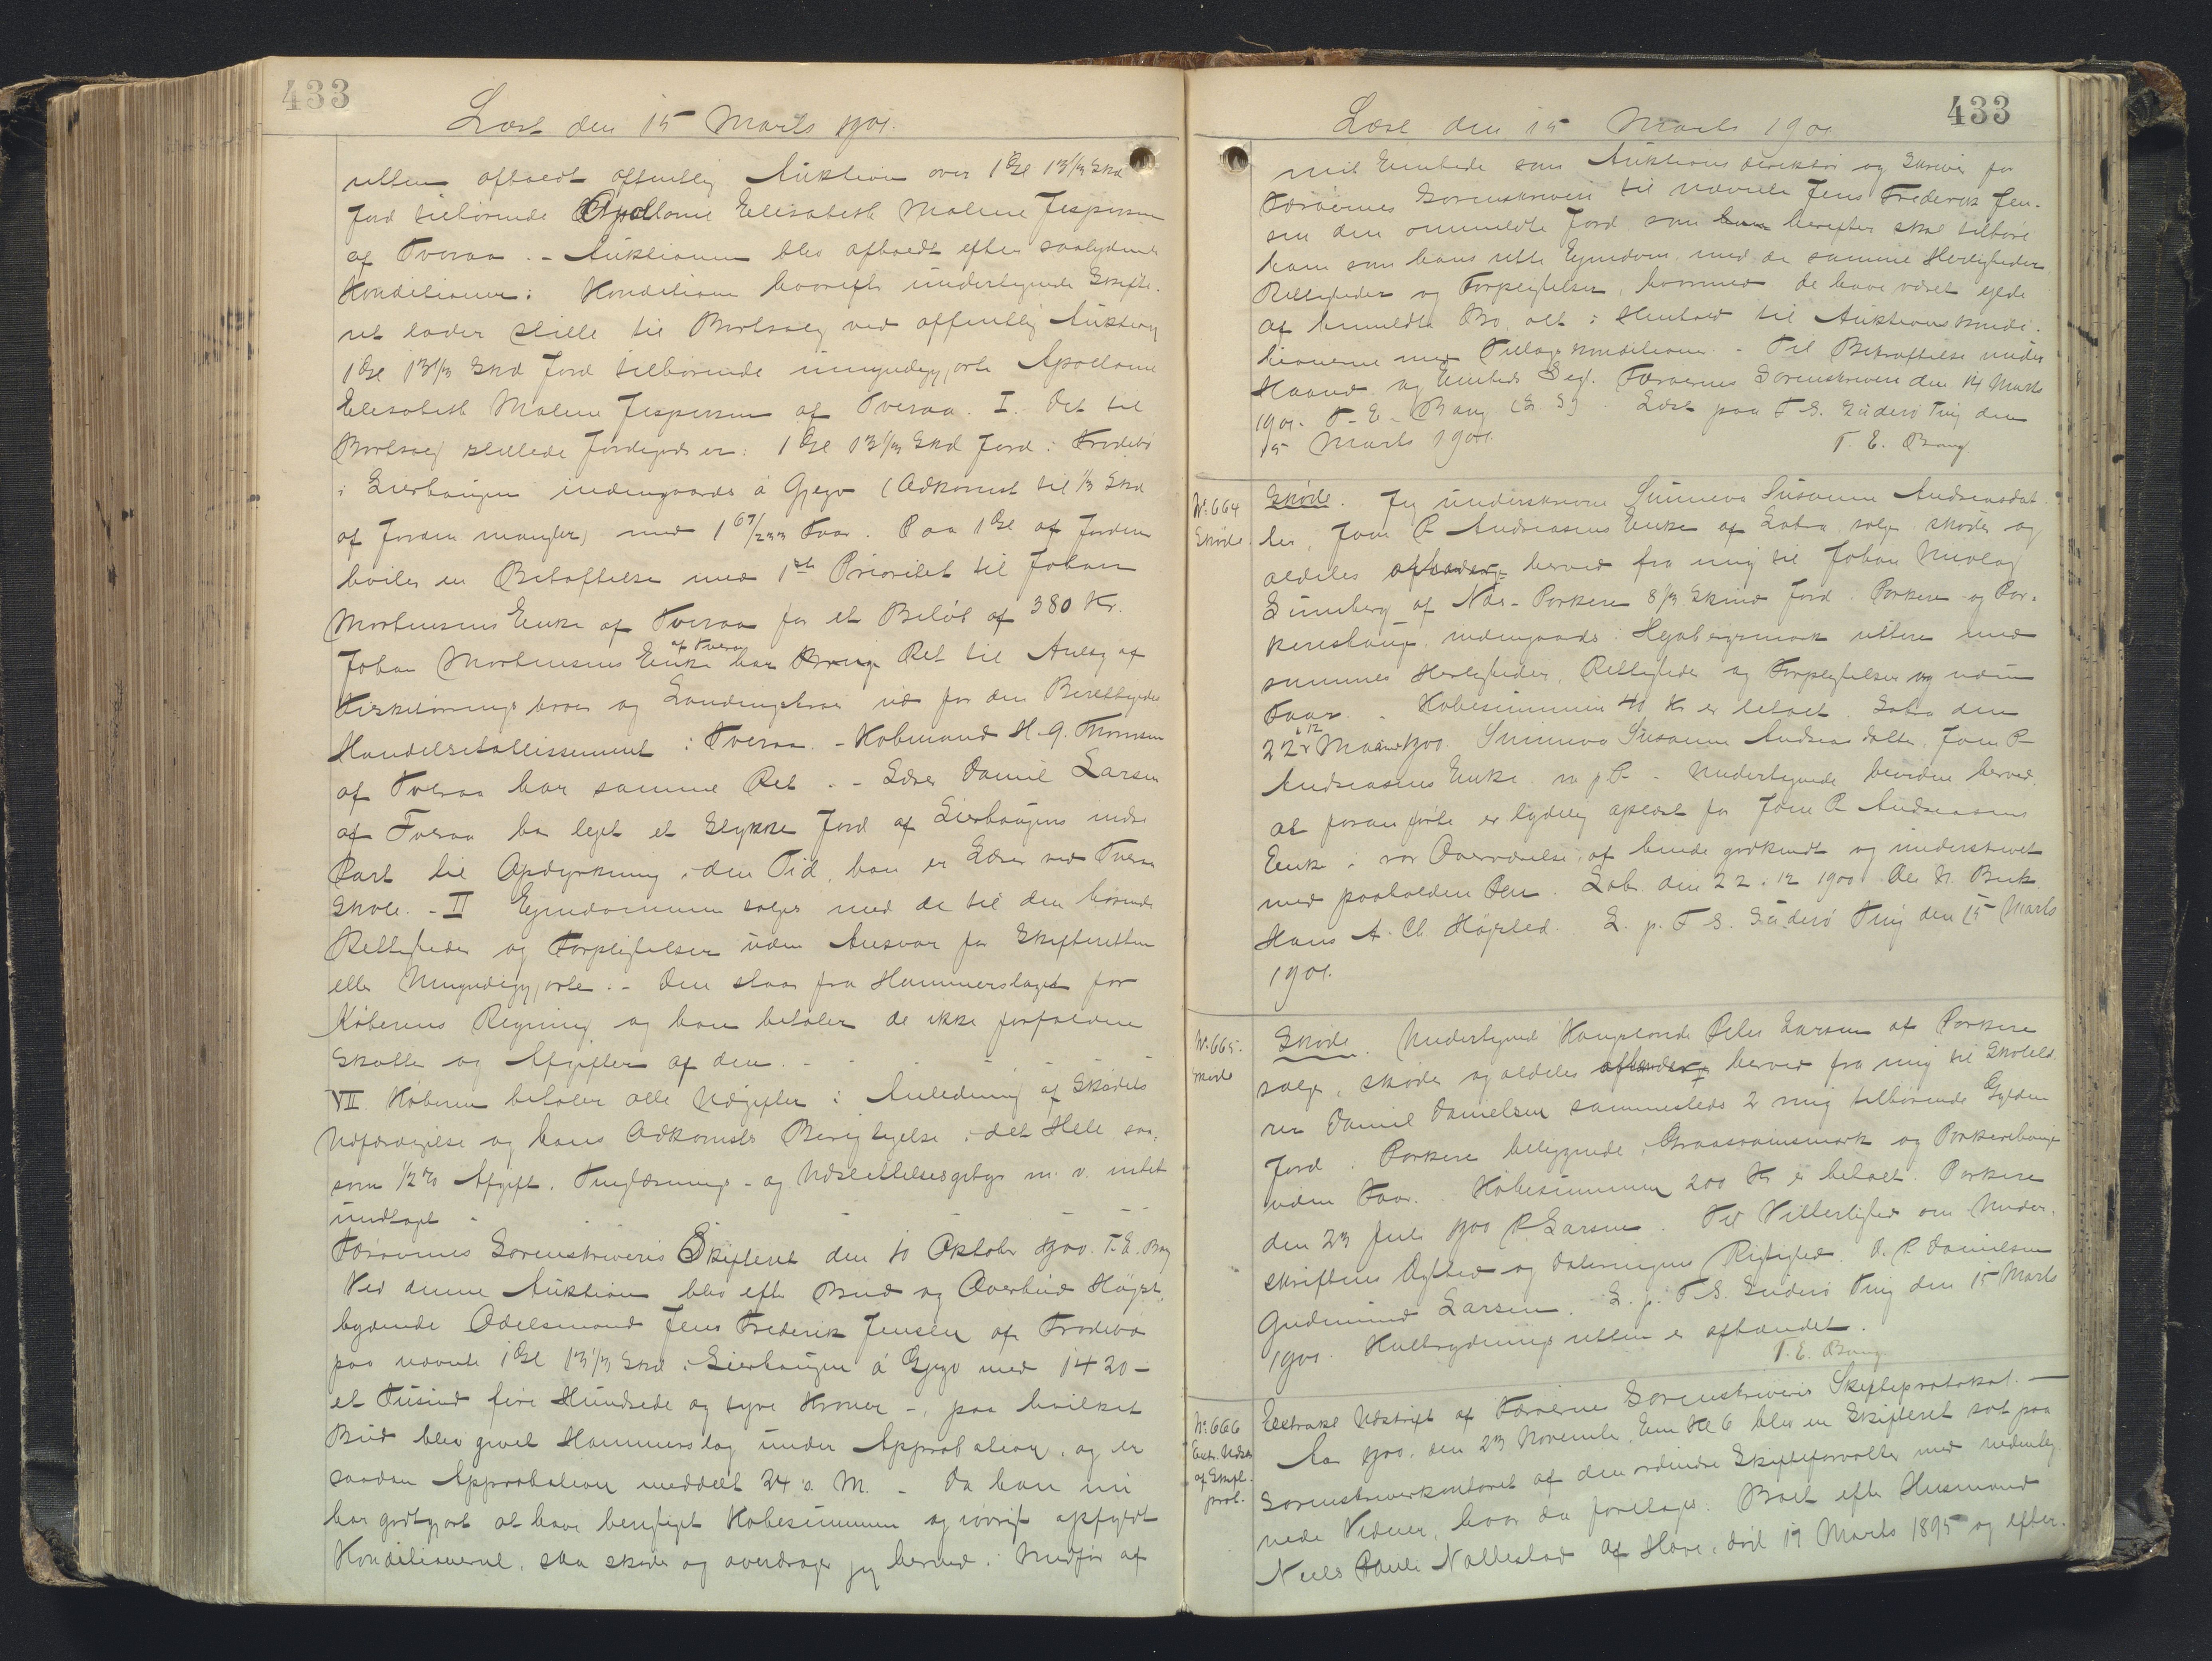 433
Læst den 15 Marts 1901.
retten afholdt offentlig Auktion over 1 Gl 13 1/3 Skd
Jord tilhørende Apollone Elisabeth Malene Jespersen
af Tveraa. - Auktionen blev afholdt efter saalydende
Konditioner: Konditioner hvorefter undertegnede Skifte-
ret lader stille til Bortsalg ved offentlig Auktion
1 Gl 13 1/3 Skd Jord tilhørende umyndiggjorte Apollone
Elisabeth Malene Jespersen af Tveraa. I. Det til
Bortsalg stillede Jordegods er: 1 Gl 13 1/3 Skd Jord i Frodebø
i Lierhaugen indengaards á Gjegv (Adkomst til 1/3 Skd
af Jorden mangler) med 1 67/233 Faar. Paa 1 Gl af Jorden
hviler en Behæftelse med 1ste Prioritet til Johan
Mortensens Enke af Tveraa for et Beløb af 380 Kr.
Johan Mortensens Enke af Tveraa har Brugs Ret til Anlæg af
Fisketørrings and og Landingsbroer ud for den Berettigedes
Handelsetablissement i Tveraa. - Købmand H. J. Thomsen
af Tveraa har samme Ret. - Lærer Daniel Larsen
af Tveraa har lejet et Stykke Jord af Lierhaugens indre
Part til Opdyrkning i den Tid, han er Lærer ved Tveraa
Skole. - II Ejendommen sælges med de til den hørende
Rettigheder og Forpligtelser uden Ansvar for Skifteretten
eller Umyndiggjorte. - Den staar fra Hammerslaget for
Køberens Regning og han betaler de ikke forfaldne
Skatter og Afgifter af den. - - - -
VII. Køberen betaler alle Udgifter i Anledning af Skødets
Udfærdigelse og hans Adkomsts Berigtigelse i det Hele saa-
som 1/2 % Afgift, Tinglæsnings- og Udslettelsesgebyr m. v. intet
undtaget - - - -
Færøernes Sorenskriveris Skifteret den 10 Oktobr 1900. T. E. Bang
Ved denne Auktion blev efter Bud og Overbud Højst-
bydende Odelsmand Jens Frederik Jensen af Frodebø
paa nævnte 1 Gl 13 1/3 Skd i Lierhaugen á Gjegv med 1420 -
et Tusind fire Hundrede og tyve Kroner -, paa hvilket
Bud blev givet Hammerslag under Approbation, og er
saadan Approbation meddelt 24 s. M. - Da han nu
har godtgjort at have berigtiget Købesummen og iøvrigt opfyldt
Konditionerne, saa skøder og overdrager jeg herved i Medfør af
433
Læst den 15 Marts 1901
mit Embede som Auktionsdirektør og Skriver for
Færøernes Sorenskriveri til nævnte Jens Frederik Jen-
sen den ommeldte Jord som herefter skal tilhøre
ham som hans rette Ejendom med de samme Herligheder
Rettigheder og Forpligtelser, hvormed de have været ejede
af bemeldte Bo, alt i Henhold til Auktionskondi-
tionerne med Tillægskonditioner. - Til Bekræftelse under
Haand og Embeds Segl. Færøernes Sorenskriveri den 14 Marts
1901. T. E. Bang (L. S.) Læst paa F. S. Suderø Ting den
15 Marts 1901.
T. E. Bang
No: 664
Skøde.
Skøde. Jeg underskrevne Sunneva Susanne Andreasdat-
ter, Joen P. Andreasens Enke af Laba sælger, skøder og
aldeles afhænder herved fra mig til Johan Nicolaj
Sunnberg af Nes-Porkere 8 1/3 Skind Jord i Porkere og Por-
kereshauge indengaards i Hejabrigsmark uttere med
sammes Herligheder, Rettigheder og Forpligtelser og uden
Faar. - Købesummen 40 Kr er betalt. Laba den
22 12 1900. Sunneva Susanne Andreasdatter, Joen P.
Andreasens Enke. m. p. P. - Undertegnede bevidne herved
at foranførte er tydelig oplæst for Joen P. Andreasens
Enke i vor Overværelse, af hende godkendt og underskrevet
med paaholden Pen. Laba den 22. 12 1900. Ole N. Bech
Hans A. Cl. Højsted. L. p. F. S. Suderø Ting den 15 Marts
1901.
No. 665.
Skøde
Skøde. Undertegnede Kongsbonde Peter Larsen af Porkere
sælger, skøder og aldeles afhænder herved fra mig til Skolelæ-
rer Daniel Danielsen sammesteds 2 mig tilhørende Gylden
Jord i Porkere beliggende i Graasramsmark og Porkerehauge
uden Faar. Købesummen 200 Kr er betalt. Porkere
den 23 Juli 1900 P. Larsen. Til Vitterlighed om Under-
skriftens Ægthed og Dateringens Rigtighed. D. P. Danielsen
Gudmund Larsen. L. p. F. S. Suderø Ting den 15 Marts
1901. Kulbrydningsretten er afhændet.
T. E. Bang
No: 666
Extr. Udskr.
af Skift.
prot.
Extrakt Udskrift af Færøernes Sorenskriveris Skifteprotokol. -
Aar 1900, den 23 November, Em Kl 6 blev en Skifteret sat paa
Sorenskriverkontoret af den ordinære Skifteforvalter med nedenteg-
nede Vidner, hvor da foretages: Boet efter Husmand
Niels Pauli Nolbestad af Hove, død 17 Marts 1895 og efter-